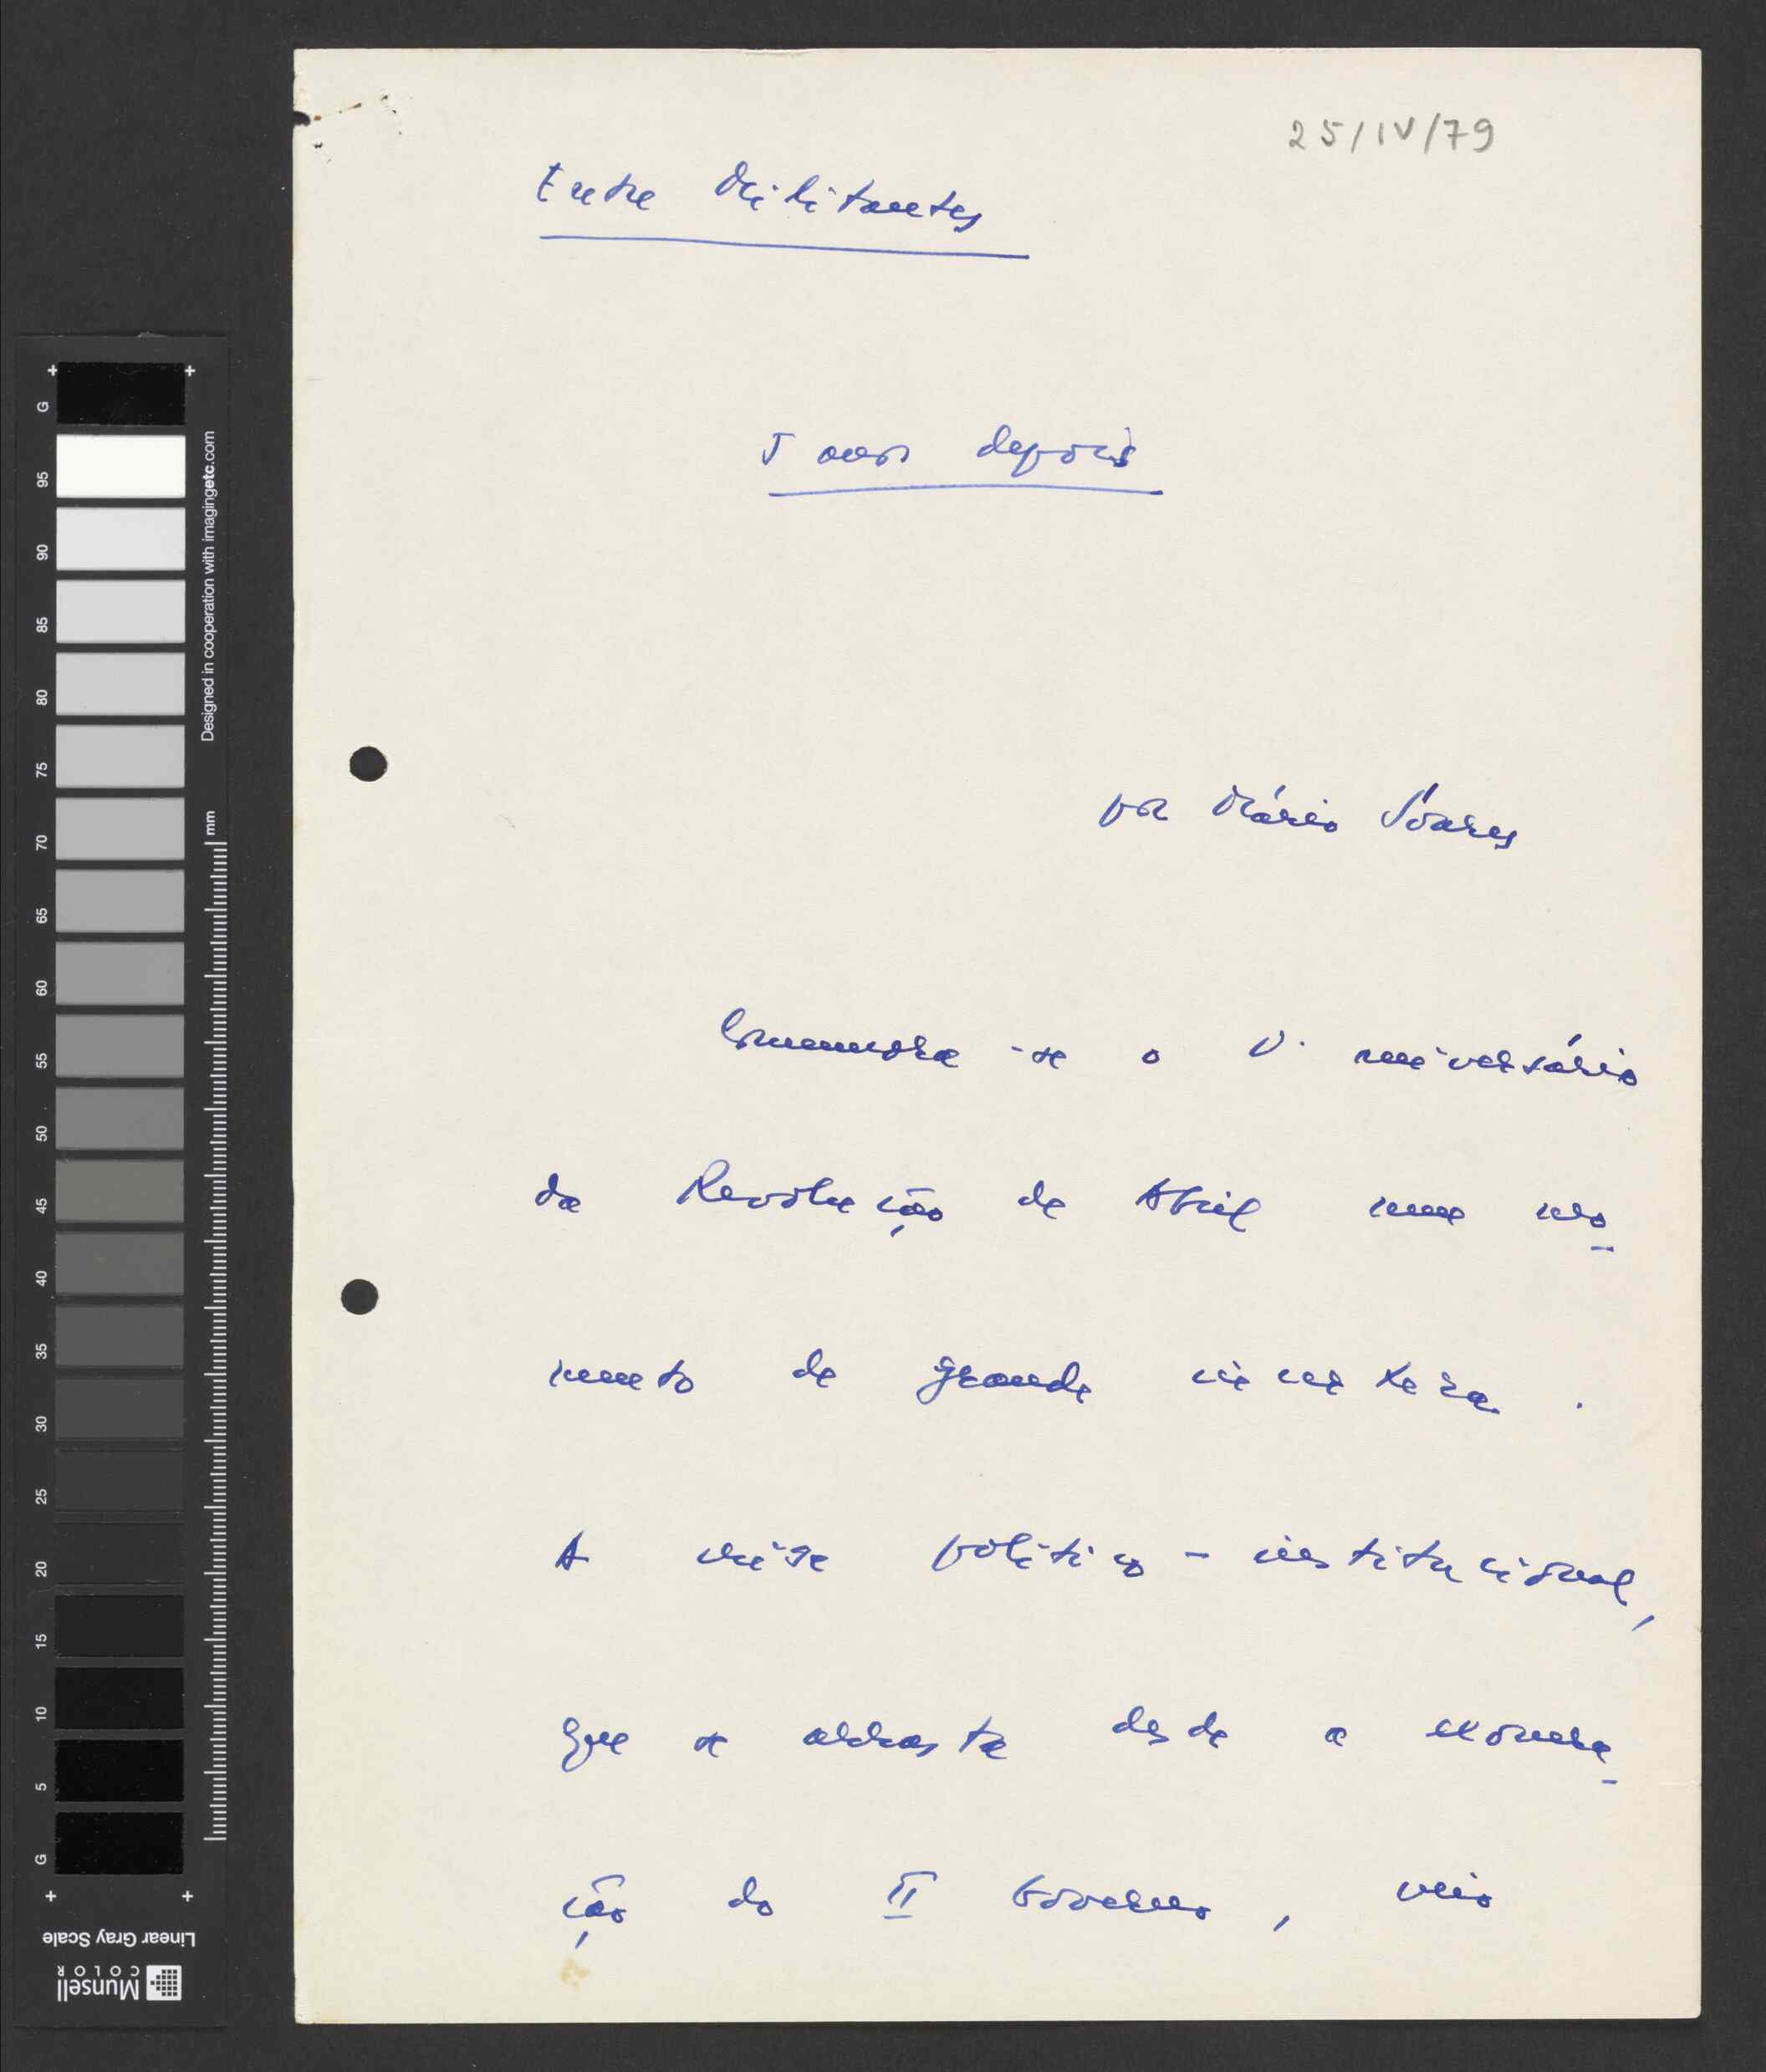 25/IV/79
Entre Militantes
5 anos depois
por Mário Soares
Comemora-se o V. aniversário
da Revolução de Abril num mo-
mento de grande incerteza.
A crise político-institucional,
que se arrasta desde a exonera-
ção do II Governo, veio
G
95
90
85
80
75
70
65
60
55
50
45
40
35
30
25
20
15
10
5
G
Designed in cooperation with imagingetc.com
mm
Linear Gray Scale
Munsell
COLOR